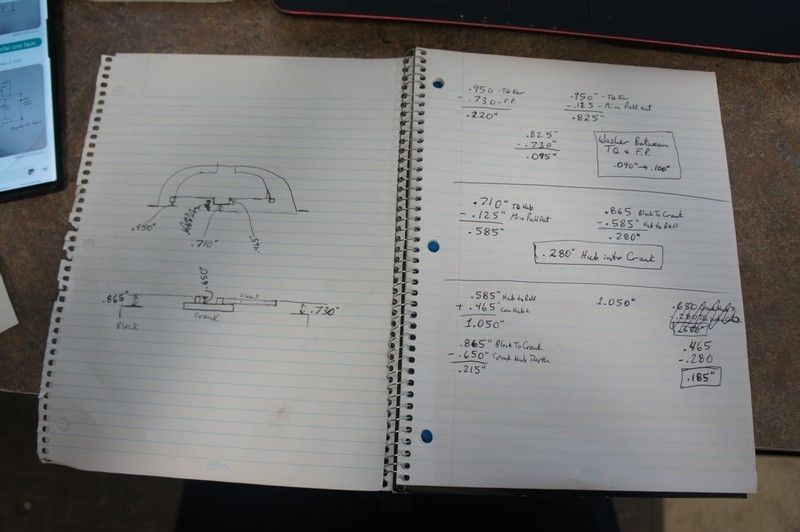 .950"
.710"
.465
.650"
.865"
.730"
Block
Crank
.950 -TQ Ear
- .730 -F.P.
.220"
.950" -TQ Ear
- .125 - Min Pull out
.825"
.825"
- .730"
.095"
Washer Between
TQ & F.P.
.090" → .100"
.710" TQ Hub
- .125" Min Pull out
.585"
.865 Block To Crank
- .585" Hub to Bell
.280"
.280" Hub into Crank
.585" Hub to Bell
+ .465"
1.050"
1.050"
.865" Block To Crank
- .650" Crank Hub Depth
.215"
.650
- .280
.465
- .280
.185"